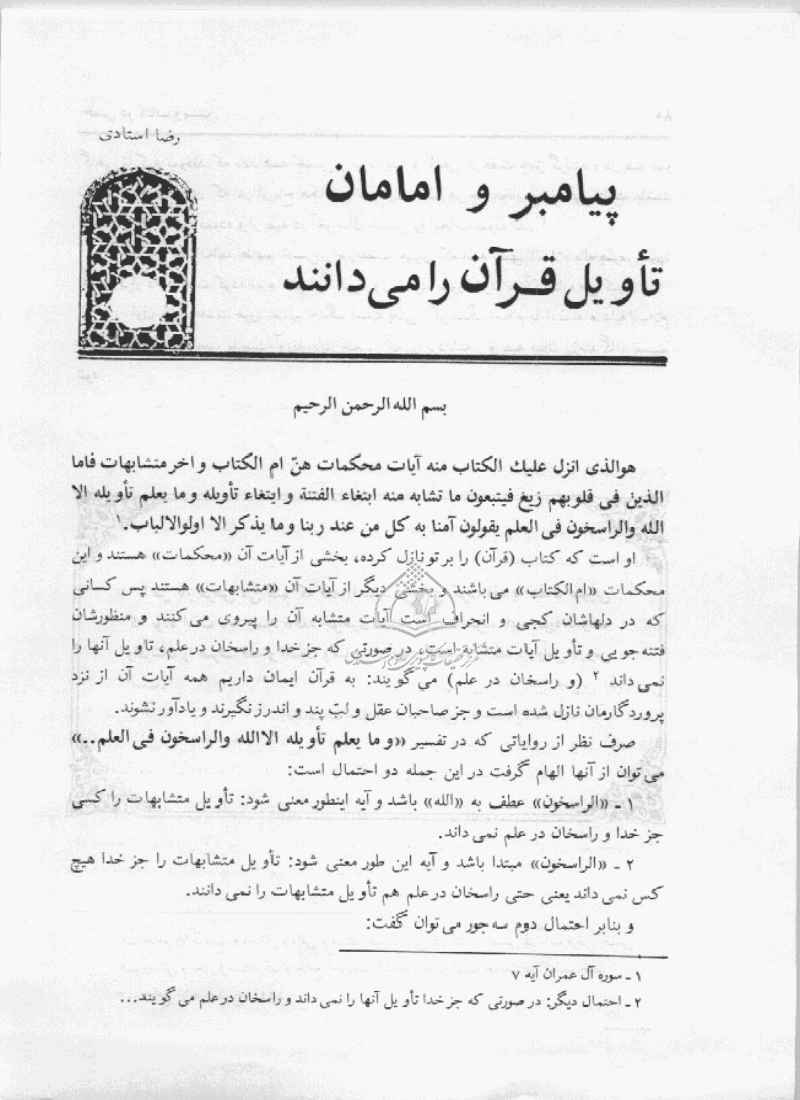 رضا استادی
پیامبر و امامان
تأویل قرآن را می‌دانند
بسم الله الرحمن الرحیم
هوالذی انزل علیك الکتاب منه آیات محکمات هنّ ام الکتاب و اخر متشابهات فاما
الذین فی قلوبهم زیغ فیتبعون ما تشابه منه ابتغاء الفتنة و ابتغاء تأویله و ما یعلم تأویله الا
الله والراسخون فی العلم یقولون آمنا به کل من عند ربنا و ما یذکر الا اولوالالباب.۱
او است که کتاب (قرآن) را بر تو نازل کرده، بخشی از آیات آن «محکمات» هستند و این
محکمات «ام‌الکتاب» می‌باشند و بخشی دیگر از آیات آن «متشابهات» هستند پس کسانی
که در دلهاشان کجی و انحراف است آیات متشابه آن را پیروی می‌کنند و منظورشان
فتنه‌جویی و تأویل آیات متشابه است، در صورتی که جز خدا و راسخان در علم، تاویل آنها را
نمی‌داند ۲ (و راسخان در علم) می‌گویند: به قرآن ایمان داریم همه آیات آن از نزد
پروردگارمان نازل شده است و جز صاحبان عقل و لبّ پند و اندرز نگیرند و یادآور نشوند.
صرف نظر از روایاتی که در تفسیر «و ما یعلم تأویله الاالله والراسخون فی العلم..»
می‌توان از آنها الهام گرفت در این جمله دو احتمال است:
۱ ـ «الراسخون» عطف به «الله» باشد و آیه اینطور معنی شود: تأویل متشابهات را کسی
جز خدا و راسخان در علم نمی داند.
۲ ـ «الراسخون» مبتدا باشد و آیه این طور معنی شود: تأویل متشابهات را جز خدا هیچ
کس نمی داند یعنی حتی راسخان در علم هم تأویل متشابهات را نمی دانند.
و بنابر احتمال دوم سه جور می‌توان گفت:
۱ ـ سوره آل عمران آیه ۷
۲ ـ احتمال دیگر: در صورتی که جز خدا تأویل آنها را نمی داند و راسخان در علم می گویند...